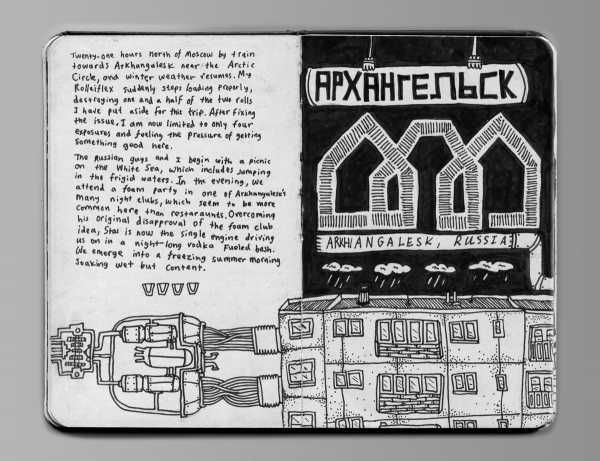 Twenty-one hours north of Moscow by train
towards Arkhangalesk near the Arctic
Circle, and winter weather resumes. My
Rolleiflex suddenly stops loading properly,
destroying one and a half of the two rolls
I have put aside for this trip. After fixing
the issue, I am now limited to only four
exposures and feeling the pressure of getting
something good here.
The Russian guys and I begin with a picnic
on the White Sea, which includes jumping
in the frigid waters. In the evening, we
attend a foam party in one of Arkhangalesk's
many night clubs, which seem to be more
common here than restaraunts. Overcoming
his original disapproval of the foam club
idea, Stas is now the single engine driving
us on in a night-long vodka fueled bash.
We emerge into a freezing summer morning
soaking wet but content.
АРХАНГЕЛЬСК
ARKHANGALESK, RUSSIA